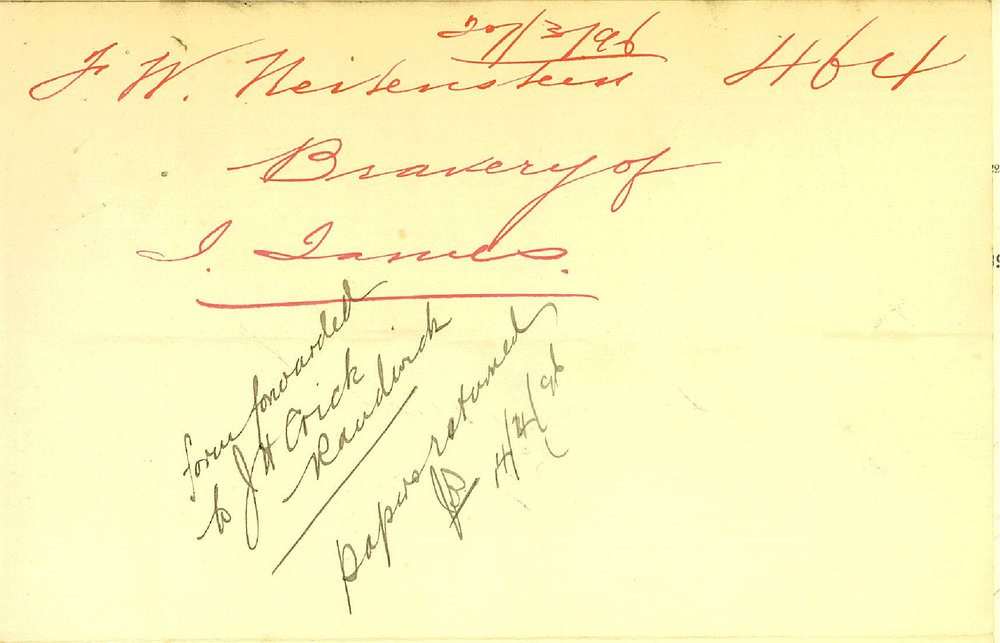 20/3/96
F W. Neitenstein 464
Bravery of
I. James.
form forwarded
to J H Crick
Randwick
papers returned
14/4/96